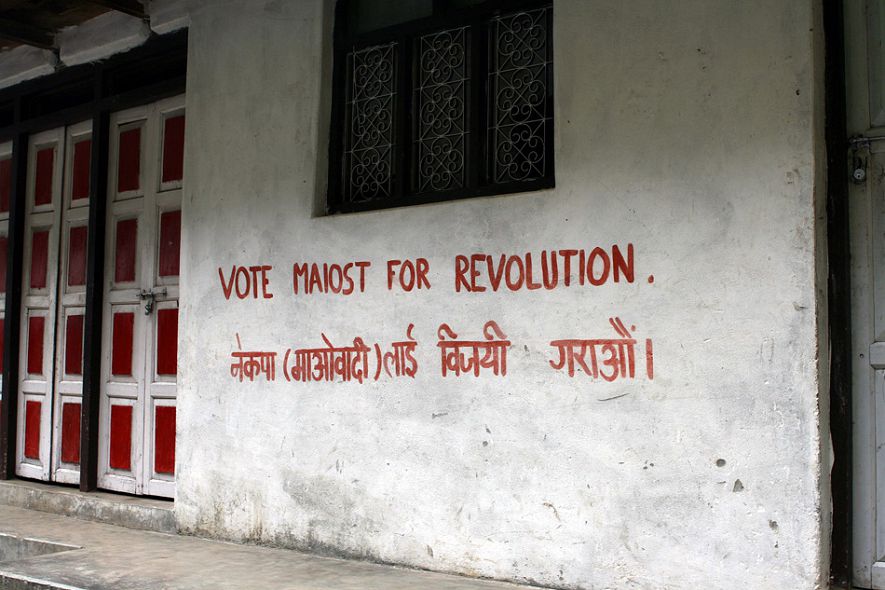 VOTE MAIOST FOR REVOLUTION.
नेकपा (माओवादी) लाई विजयी गराऔं।